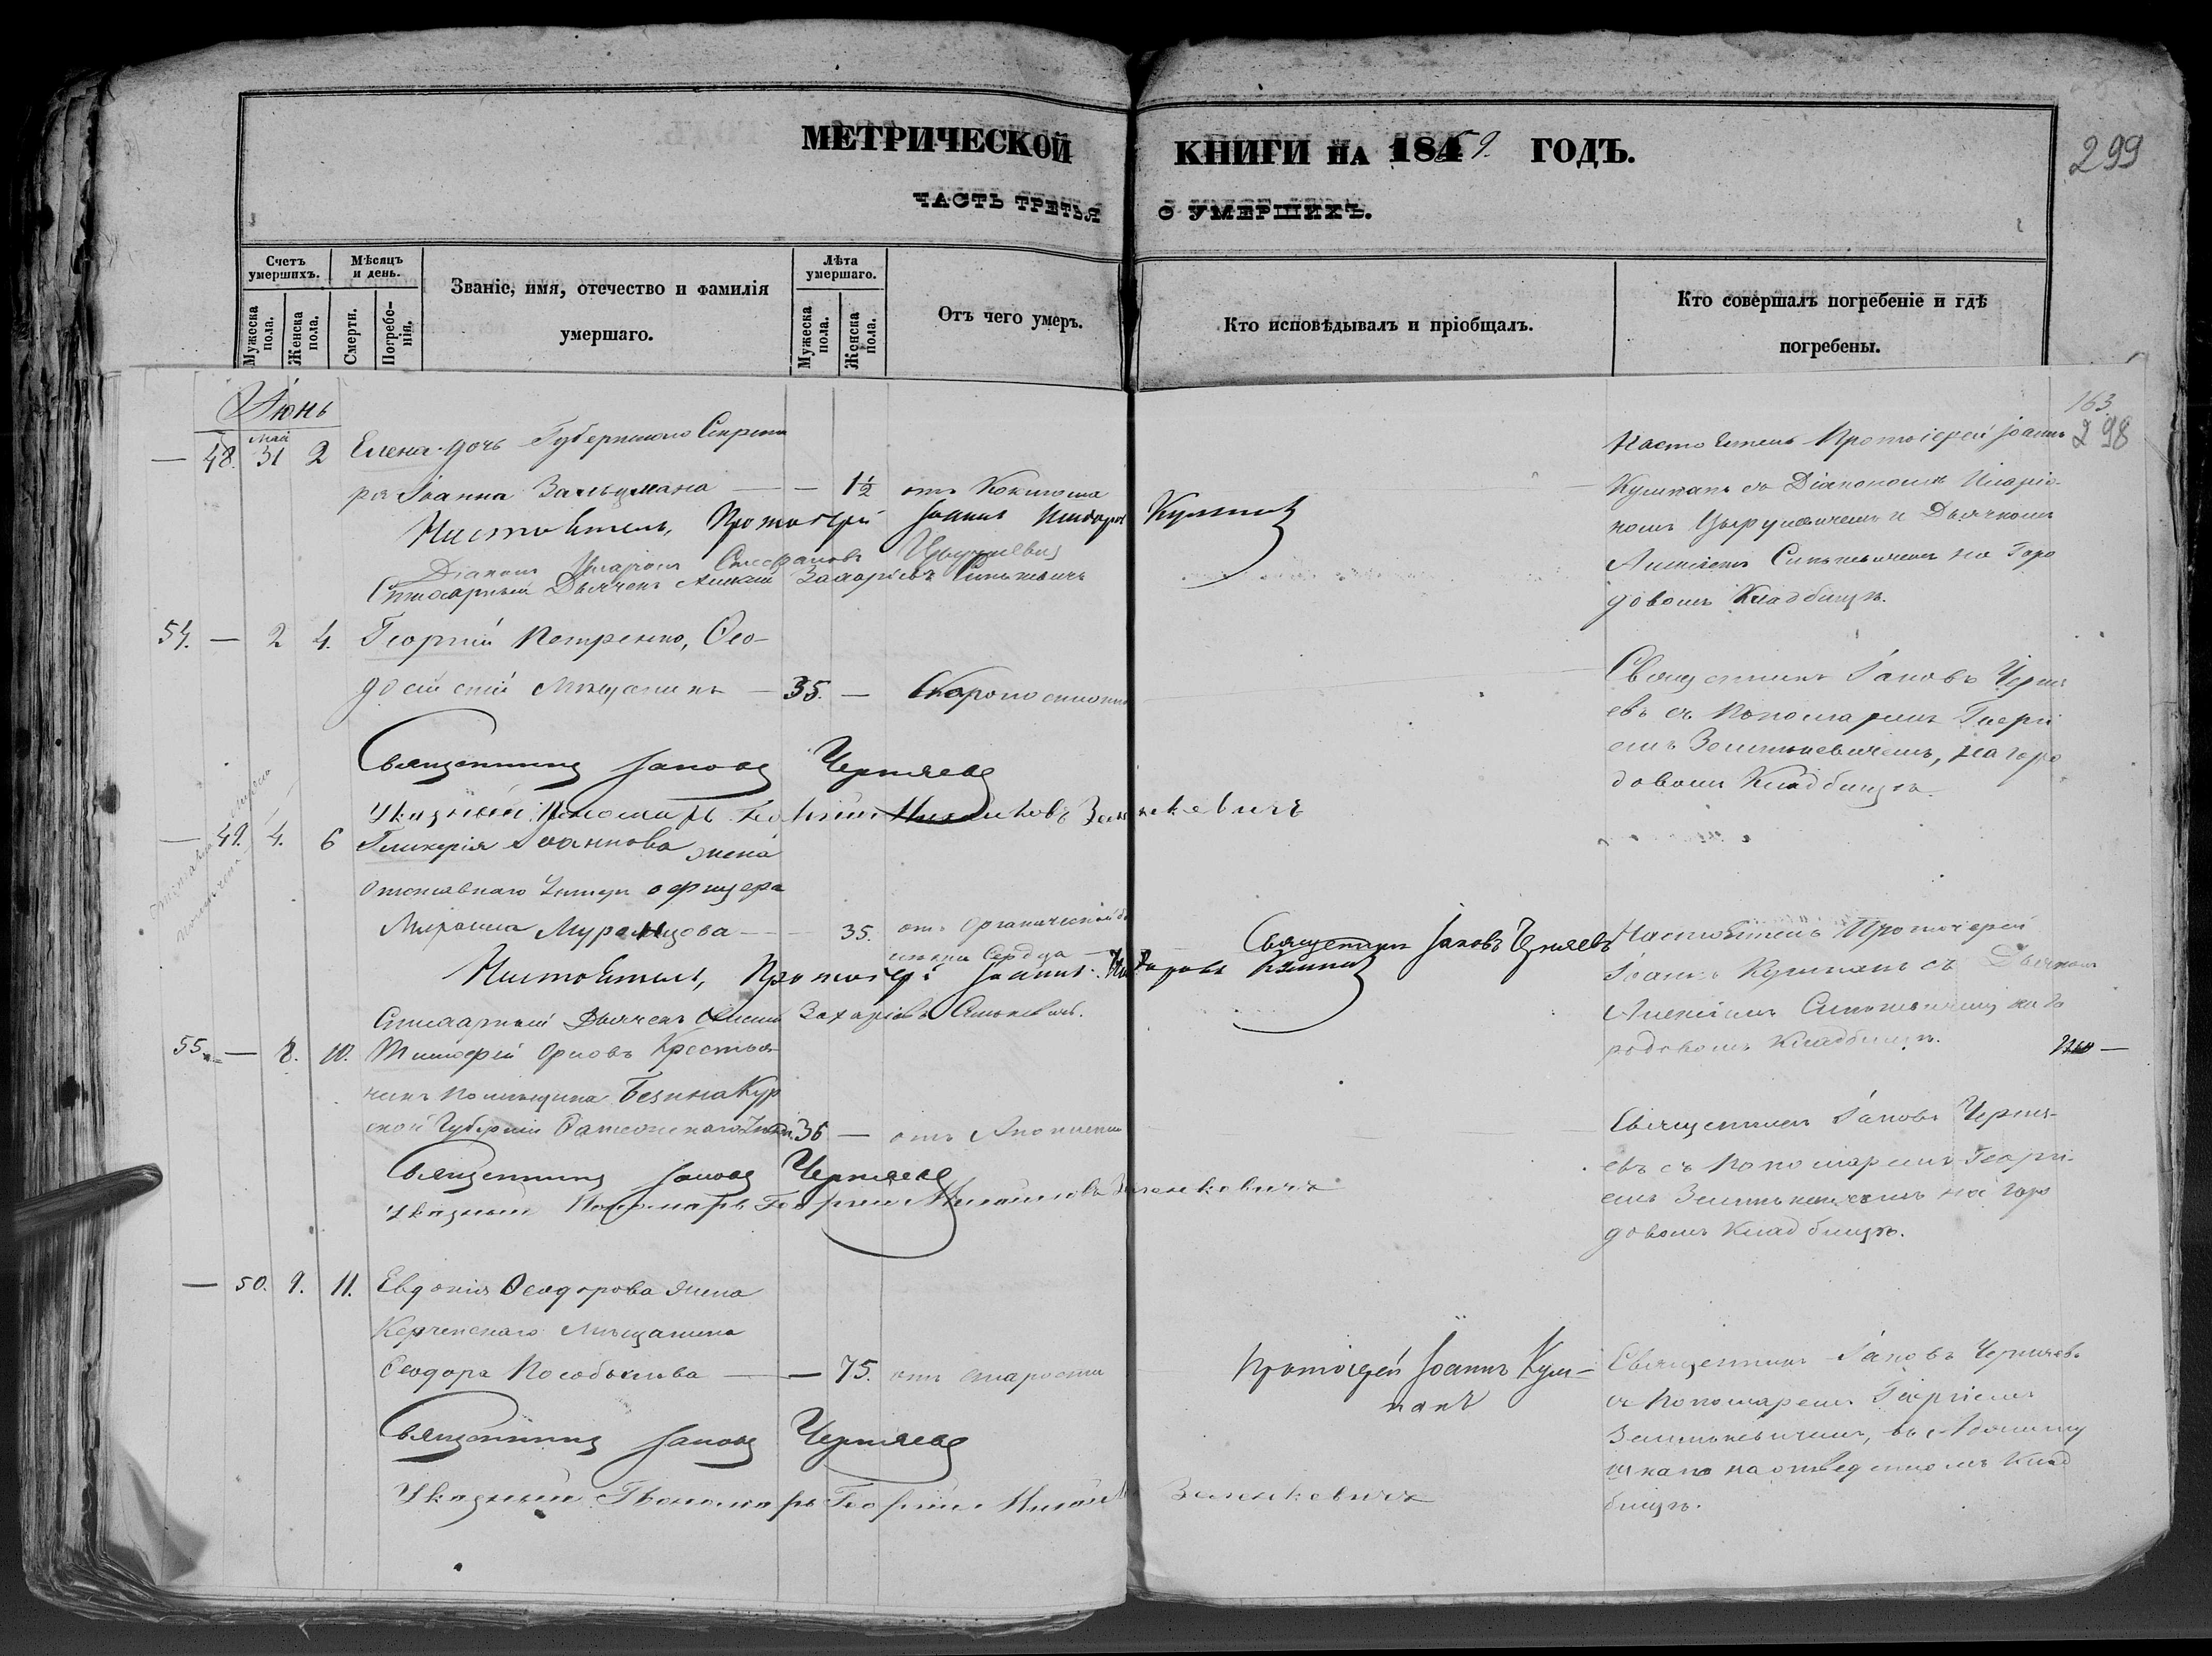 МЕТРИЧЕСКОЙ КНИГИ НА 1859. ГОДЪ.
299
ЧАСТЬ ТРЕТЬЯ О УМЕРШИХЪ.
Счетъ умершихъ.
Мужеска пола.
Женска пола.
Мѣсяцъ и день.
Смерти.
Погребенія.
Званіе, имя, отечество и фамилія
умершаго.
Лѣта умершаго.
Мужеска пола.
Женска пола.
Отъ чего умеръ.
Кто исповѣдывалъ и пріобщалъ.
Кто совершалъ погребеніе и гдѣ
погребены.
Іюнь
163
298
— 48. май 31 2 Елена дочь Губернского Секрета
ря Іоанна Зальцмана — — 1½ отъ Коклюша
Настоятель Протоіерей Іоаннъ
Кумпанъ съ Діакономъ Иларіо-
номъ и Дьячкомъ
Алексіемъ Синькевичемъ на Горо
довомъ Кладбищѣ.
Настоятель, Протоіерей Іоаннъ Кумпанъ
Діаконъ Иларіонъ Стефановъ
Дьячекъ Алексій Захаріевъ Синькевичъ
54. — 2 4. Георгій Петренко, Ѳео-
досійскій Мѣщанинъ — 35. — Скоропостижно
Священникъ Іаковъ Черня
евъ съ Пономаремъ Георгі
емъ Зенькевичемъ, на горо
довомъ Кладбищѣ
Священникъ Іаковъ Черняевъ
Указный Пономарь Георгій Михайловъ Зенькевичъ
— 49. 4. 6 Гликерія Іоаннова жена
отставнаго Унтеръ офицера
Мирона Муромцова — — 35. отъ Органической
Сердца —
Священникъ Іаковъ Черняевъ
Настоятель Протоіерей
Іоаннъ Кумпанъ съ Дьячкомъ
Алексіемъ Синькевичемъ на Го
родовомъ Кладбищѣ.
Настоятель, Протоіерей Іоаннъ Кумпанъ
Дьячекъ Алексій Захаріевъ Синькевичъ.
55. — 8. 10. Тимофей Орловъ Крестья-
нинъ Помѣщика Безина Кур
ской Губерніи 36 — отъ Апоплексіи
Священникъ Іаковъ Черня-
евъ съ Пономаремъ Георгі-
емъ Зенькевичемъ на Горо
довомъ Кладбищѣ.
Священникъ Іаковъ Черняевъ
Указный Пономарь Георгій Михайловъ Зенькевичъ
— 50. 9. 11. Евдокія Ѳеодорова жена
Керченскаго Мѣщанина
Ѳеодора Пособылова — — 75. отъ старости
Протоіерей Іоаннъ Кум-
панъ
Священникъ Іаковъ Черняевъ
съ Пономаремъ Георгіемъ
Зенькевичемъ, въ
на отведенномъ Клад
бищѣ.
Священникъ Іаковъ Черняевъ
Указный Пономарь Георгій Михайловъ Зенькевичъ